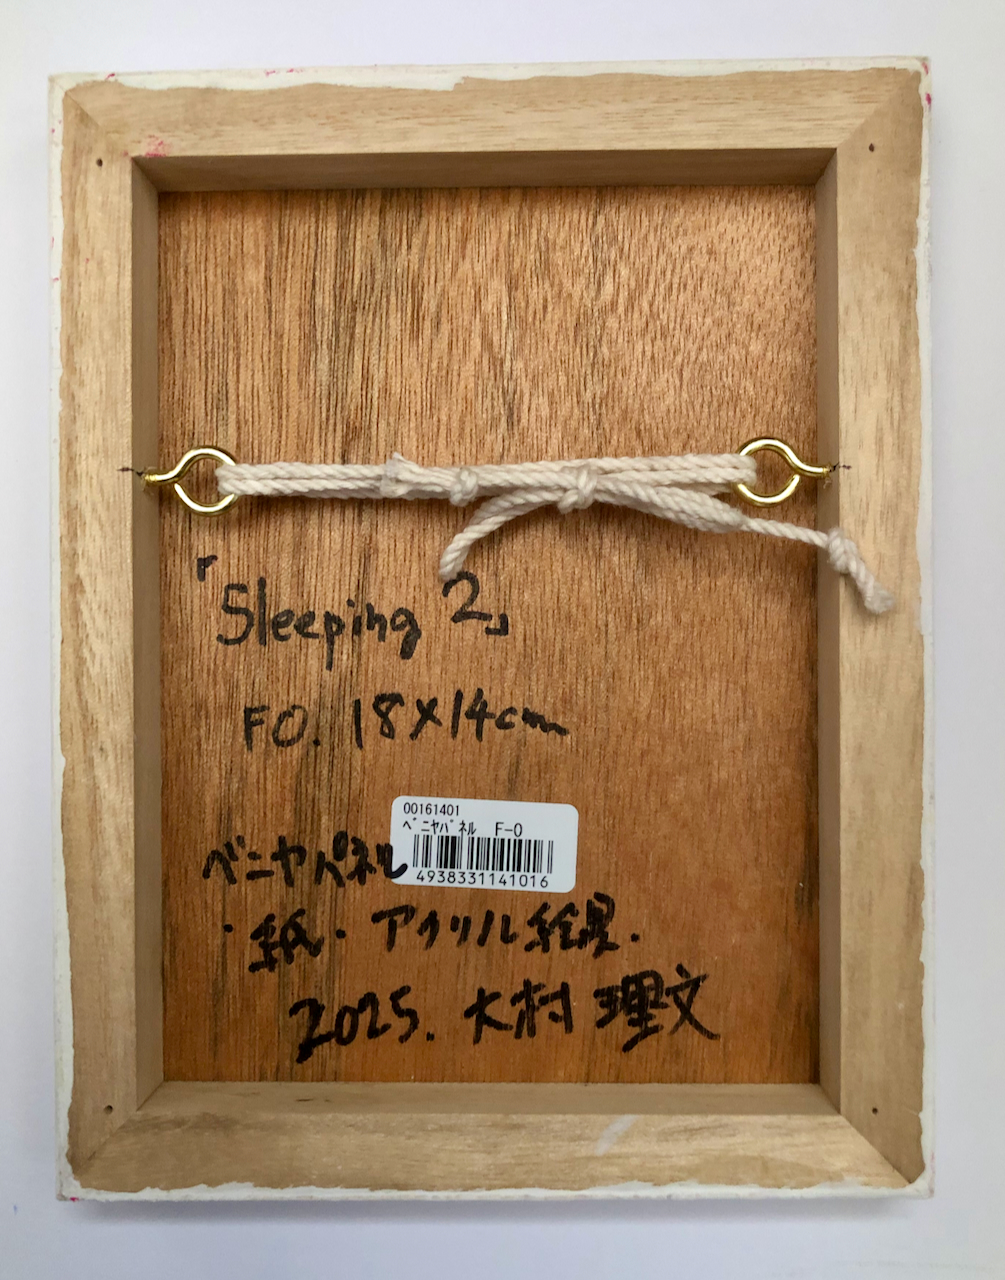 「Sleeping 2」
F0. 18×14cm
00161401
ベニヤパネル F-0
4938331141016
ベニヤパネル
・紙・アクリル絵具.
2025. 大村理文